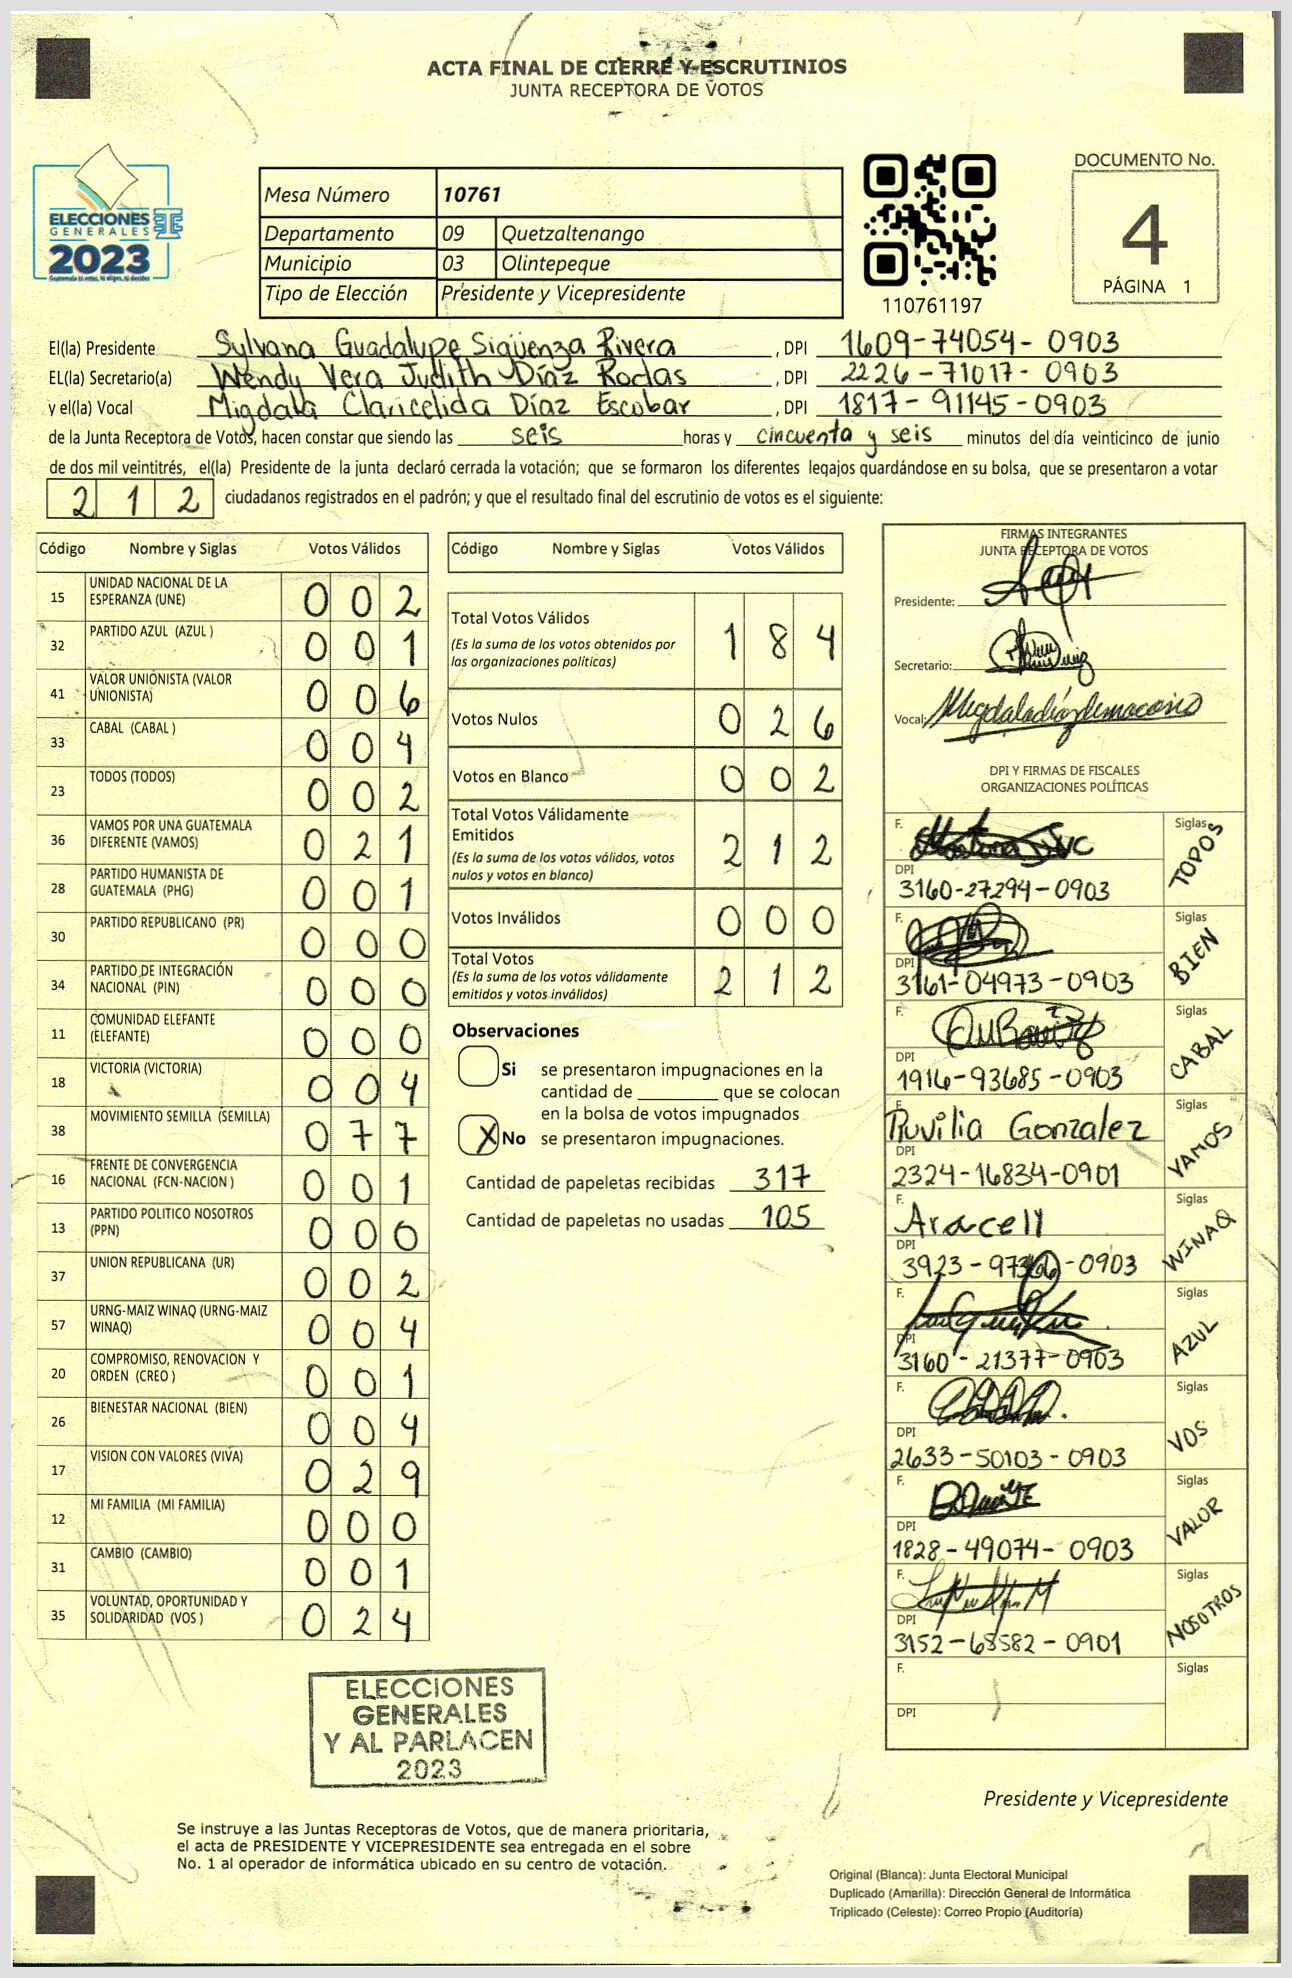 ACTA FINAL DE CIERRE Y ESCRUTINIOS
JUNTA RECEPTORA DE VOTOS
ELECCIONES
GENERALES
2023
Mesa Número 10761
Departamento 09 Quetzaltenango
Municipio 03 Olintepeque
Tipo de Elección Presidente y Vicepresidente
110761197
DOCUMENTO No.
4
PÁGINA 1
El(la) Presidente Sylvana Guadalupe Sigüenza Rivera , DPI 1609-74054-0903
EL(la) Secretario(a) Wendy Vera Judith Díaz Rodas , DPI 2226-71017-0903
y el(la) Vocal Migdala Claricelida Díaz Escobar , DPI 1817-91145-0903
de la Junta Receptora de Votos, hacen constar que siendo las seis horas y cincuenta y seis minutos del día veinticinco de junio
de dos mil veintitrés, el(la) Presidente de la junta declaró cerrada la votación; que se formaron los diferentes legajos quardándose en su bolsa, que se presentaron a votar
212 ciudadanos registrados en el padrón; y que el resultado final del escrutinio de votos es el siguiente:
Código Nombre y Siglas Votos Válidos
15 UNIDAD NACIONAL DE LA ESPERANZA (UNE) 002
32 PARTIDO AZUL (AZUL ) 001
41 VALOR UNIONISTA (VALOR UNIONISTA) 006
33 CABAL (CABAL ) 004
23 TODOS (TODOS) 002
36 VAMOS POR UNA GUATEMALA DIFERENTE (VAMOS) 021
28 PARTIDO HUMANISTA DE GUATEMALA (PHG) 001
30 PARTIDO REPUBLICANO (PR) 000
34 PARTIDO DE INTEGRACIÓN NACIONAL (PIN) 000
11 COMUNIDAD ELEFANTE (ELEFANTE) 000
18 VICTORIA (VICTORIA) 004
38 MOVIMIENTO SEMILLA (SEMILLA) 077
16 FRENTE DE CONVERGENCIA NACIONAL (FCN-NACION ) 001
13 PARTIDO POLITICO NOSOTROS (PPN) 000
37 UNION REPUBLICANA (UR) 002
57 URNG-MAIZ WINAQ (URNG-MAIZ WINAQ) 004
20 COMPROMISO, RENOVACION Y ORDEN (CREO ) 001
26 BIENESTAR NACIONAL (BIEN) 004
17 VISION CON VALORES (VIVA) 029
12 MI FAMILIA (MI FAMILIA) 000
31 CAMBIO (CAMBIO) 001
35 VOLUNTAD, OPORTUNIDAD Y SOLIDARIDAD (VOS ) 024
Código Nombre y Siglas Votos Válidos
Total Votos Válidos 184
(Es la suma de los votos obtenidos por
las organizaciones políticas)
Votos Nulos 026
Votos en Blanco 002
Total Votos Válidamente
Emitidos 212
(Es la suma de los votos válidos, votos
nulos y votos en blanco)
Votos Inválidos 000
Total Votos 212
(Es la suma de los votos válidamente
emitidos y votos inválidos)
Observaciones
Si se presentaron impugnaciones en la
cantidad de ________ que se colocan
en la bolsa de votos impugnados
X No se presentaron impugnaciones.
Cantidad de papeletas recibidas 317
Cantidad de papeletas no usadas 105
FIRMAS INTEGRANTES
JUNTA RECEPTORA DE VOTOS
Presidente:
Secretario:
Vocal:
DPI Y FIRMAS DE FISCALES
ORGANIZACIONES POLÍTICAS
F. Siglas
DPI 3160-27294-0903 TODOS
F. Siglas
DPI 3161-04973-0903 BIEN
F. Siglas
DPI 1916-93685-0903 CABAL
F. Ruvilia Gonzalez Siglas
DPI 2324-16834-0901 VAMOS
F. Araceli Siglas
DPI -0903 WINAQ
F. Siglas
DPI 3160-21377-0903 AZUL
F. Siglas
DPI 2633-50103-0903 VOS
F. Siglas
DPI 1828-49074-0903 VALOR
F. Siglas
DPI 3152-68582-0901 NOSOTROS
F. Siglas
DPI
ELECCIONES
GENERALES
Y AL PARLACEN
2023
Presidente y Vicepresidente
Se instruye a las Juntas Receptoras de Votos, que de manera prioritaria,
el acta de PRESIDENTE Y VICEPRESIDENTE sea entregada en el sobre
No. 1 al operador de informática ubicado en su centro de votación.
Original (Blanca): Junta Electoral Municipal
Duplicado (Amarilla): Dirección General de Informática
Triplicado (Celeste): Correo Propio (Auditoría)